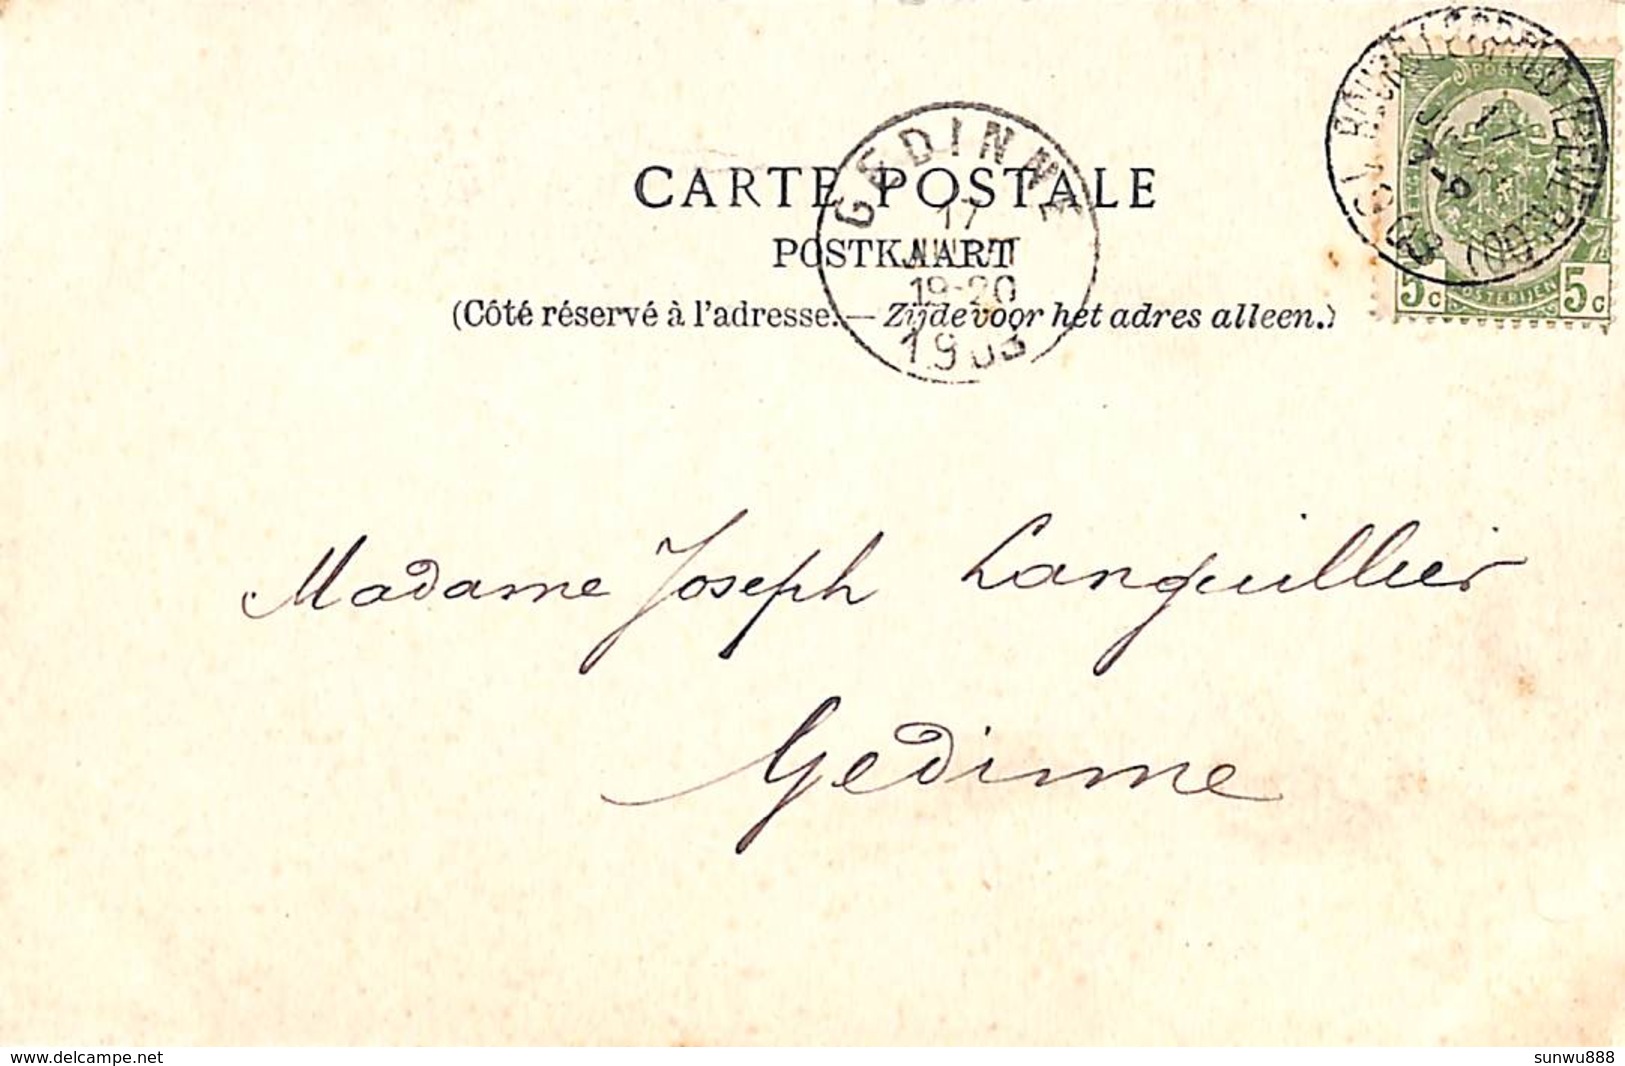 CARTE POSTALE
POSTKAART
(Côté réservé à l'adresse.— Zijde voor het adres alleen.)
GEDINNE
17
JUIN
19-20
1903
POSTES
5c POSTERIJEN 5c
Madame Joseph Languillier
Gedinne
delcampe.net
sunwu888